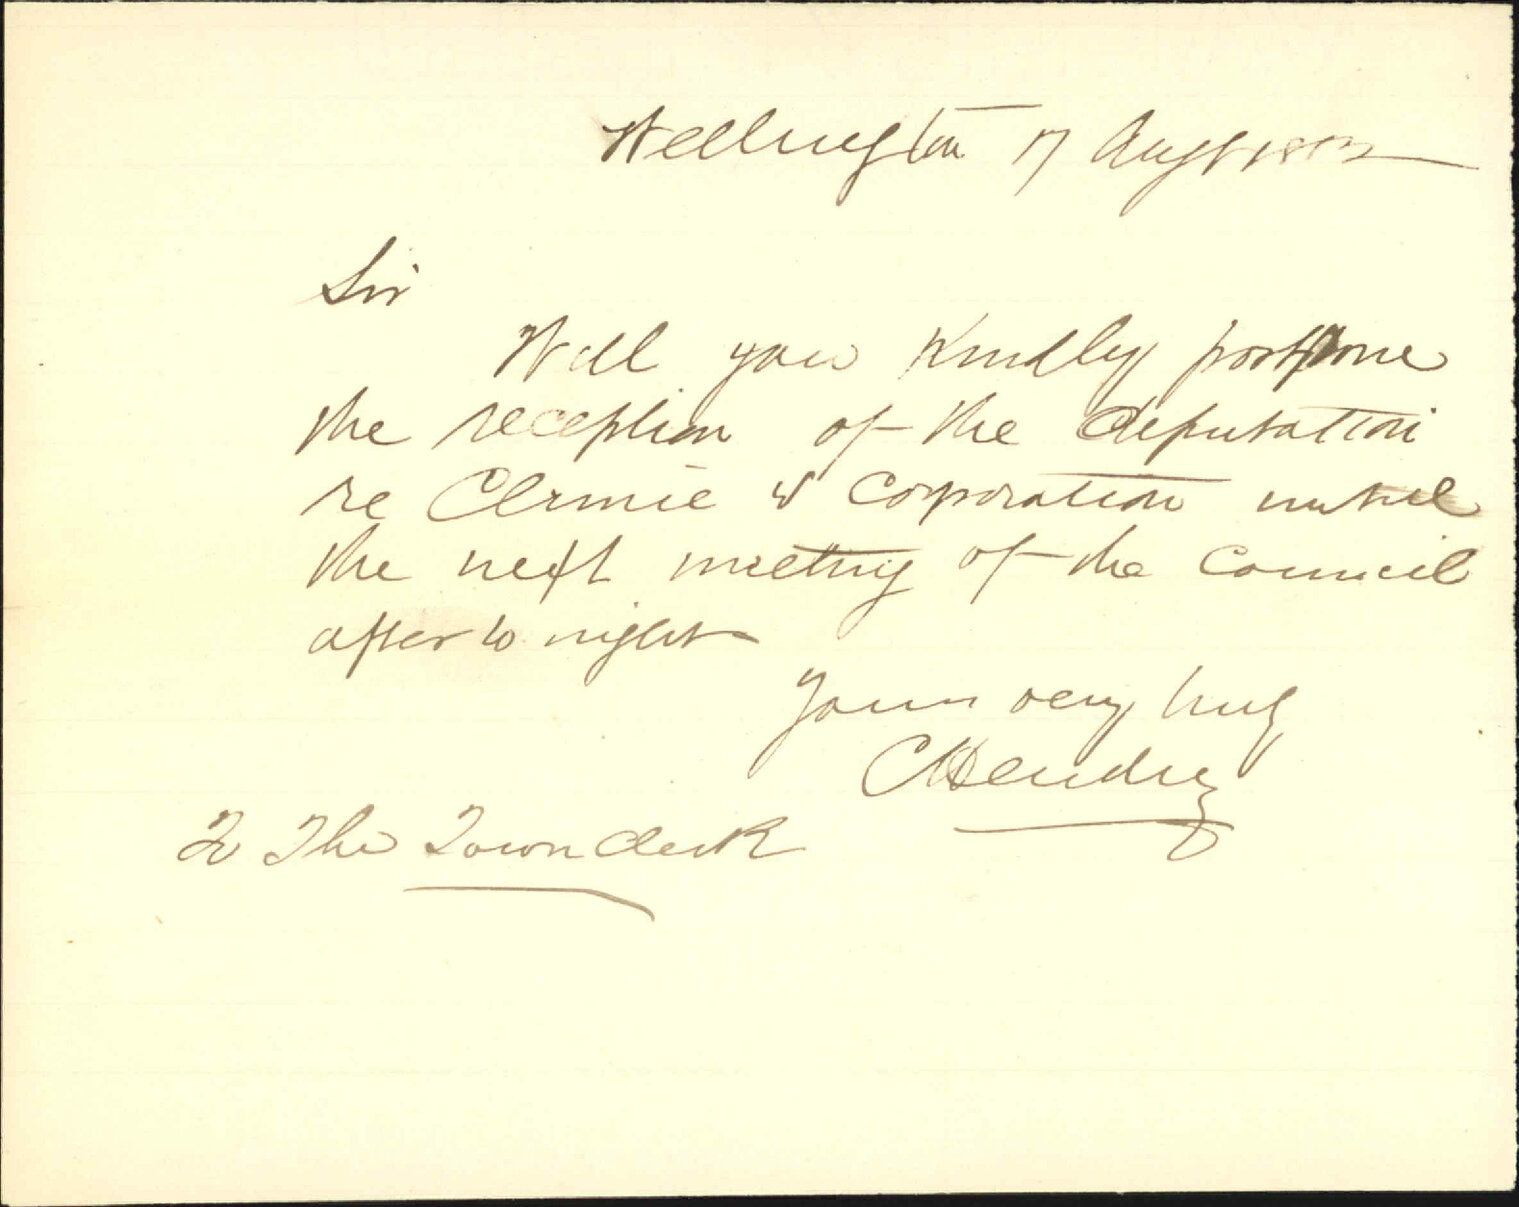 Wellington 17 Augt
Sir
Will you Kindly postpone
the reception of the deputation
re v Corporation until
the next meeting of the Council
after to night
Yours very truly
CHendry
To The Town Clerk